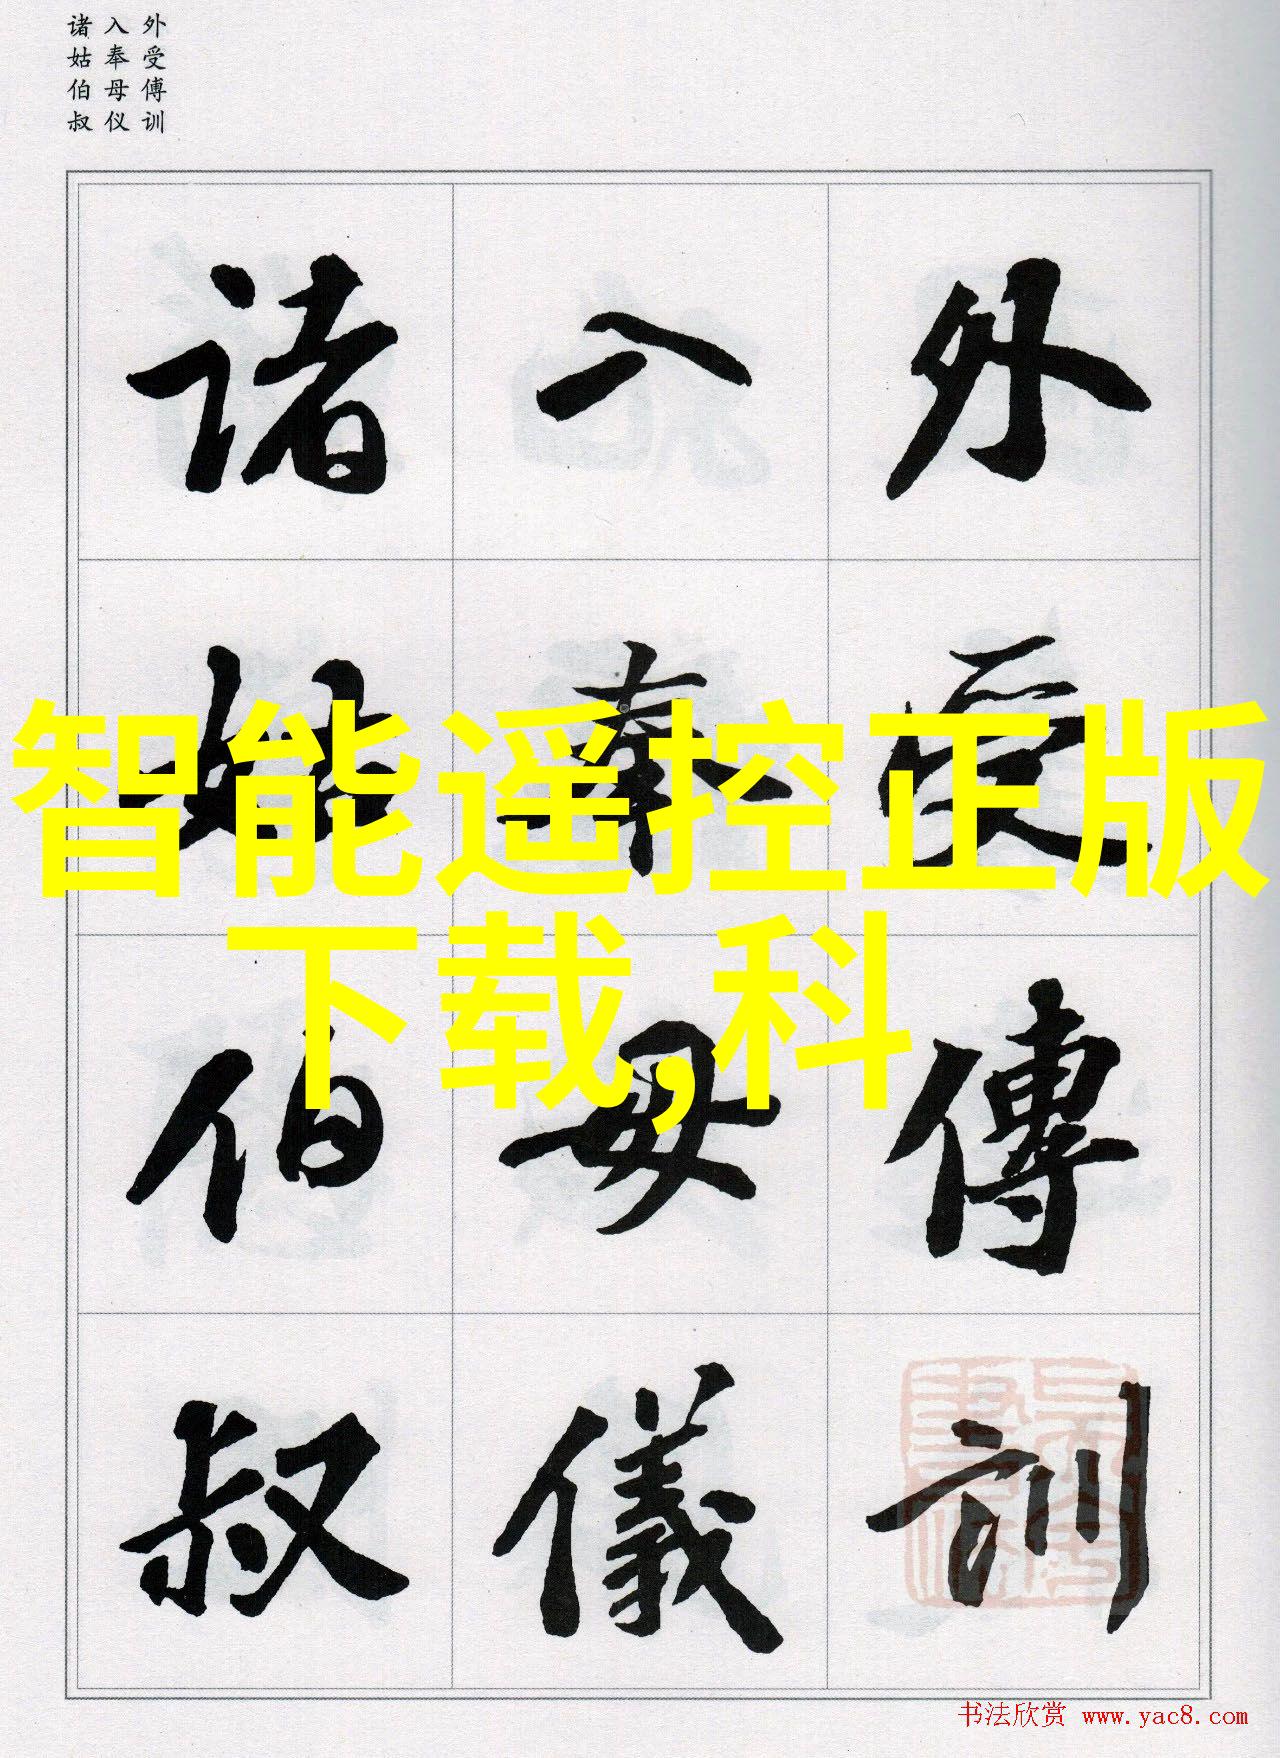 外受傅训
入奉母仪
诸姑伯叔
外受傅訓
入奉母儀
诸姑伯叔
智能遥控正版
下载,科
书法欣赏 www.yac8.com